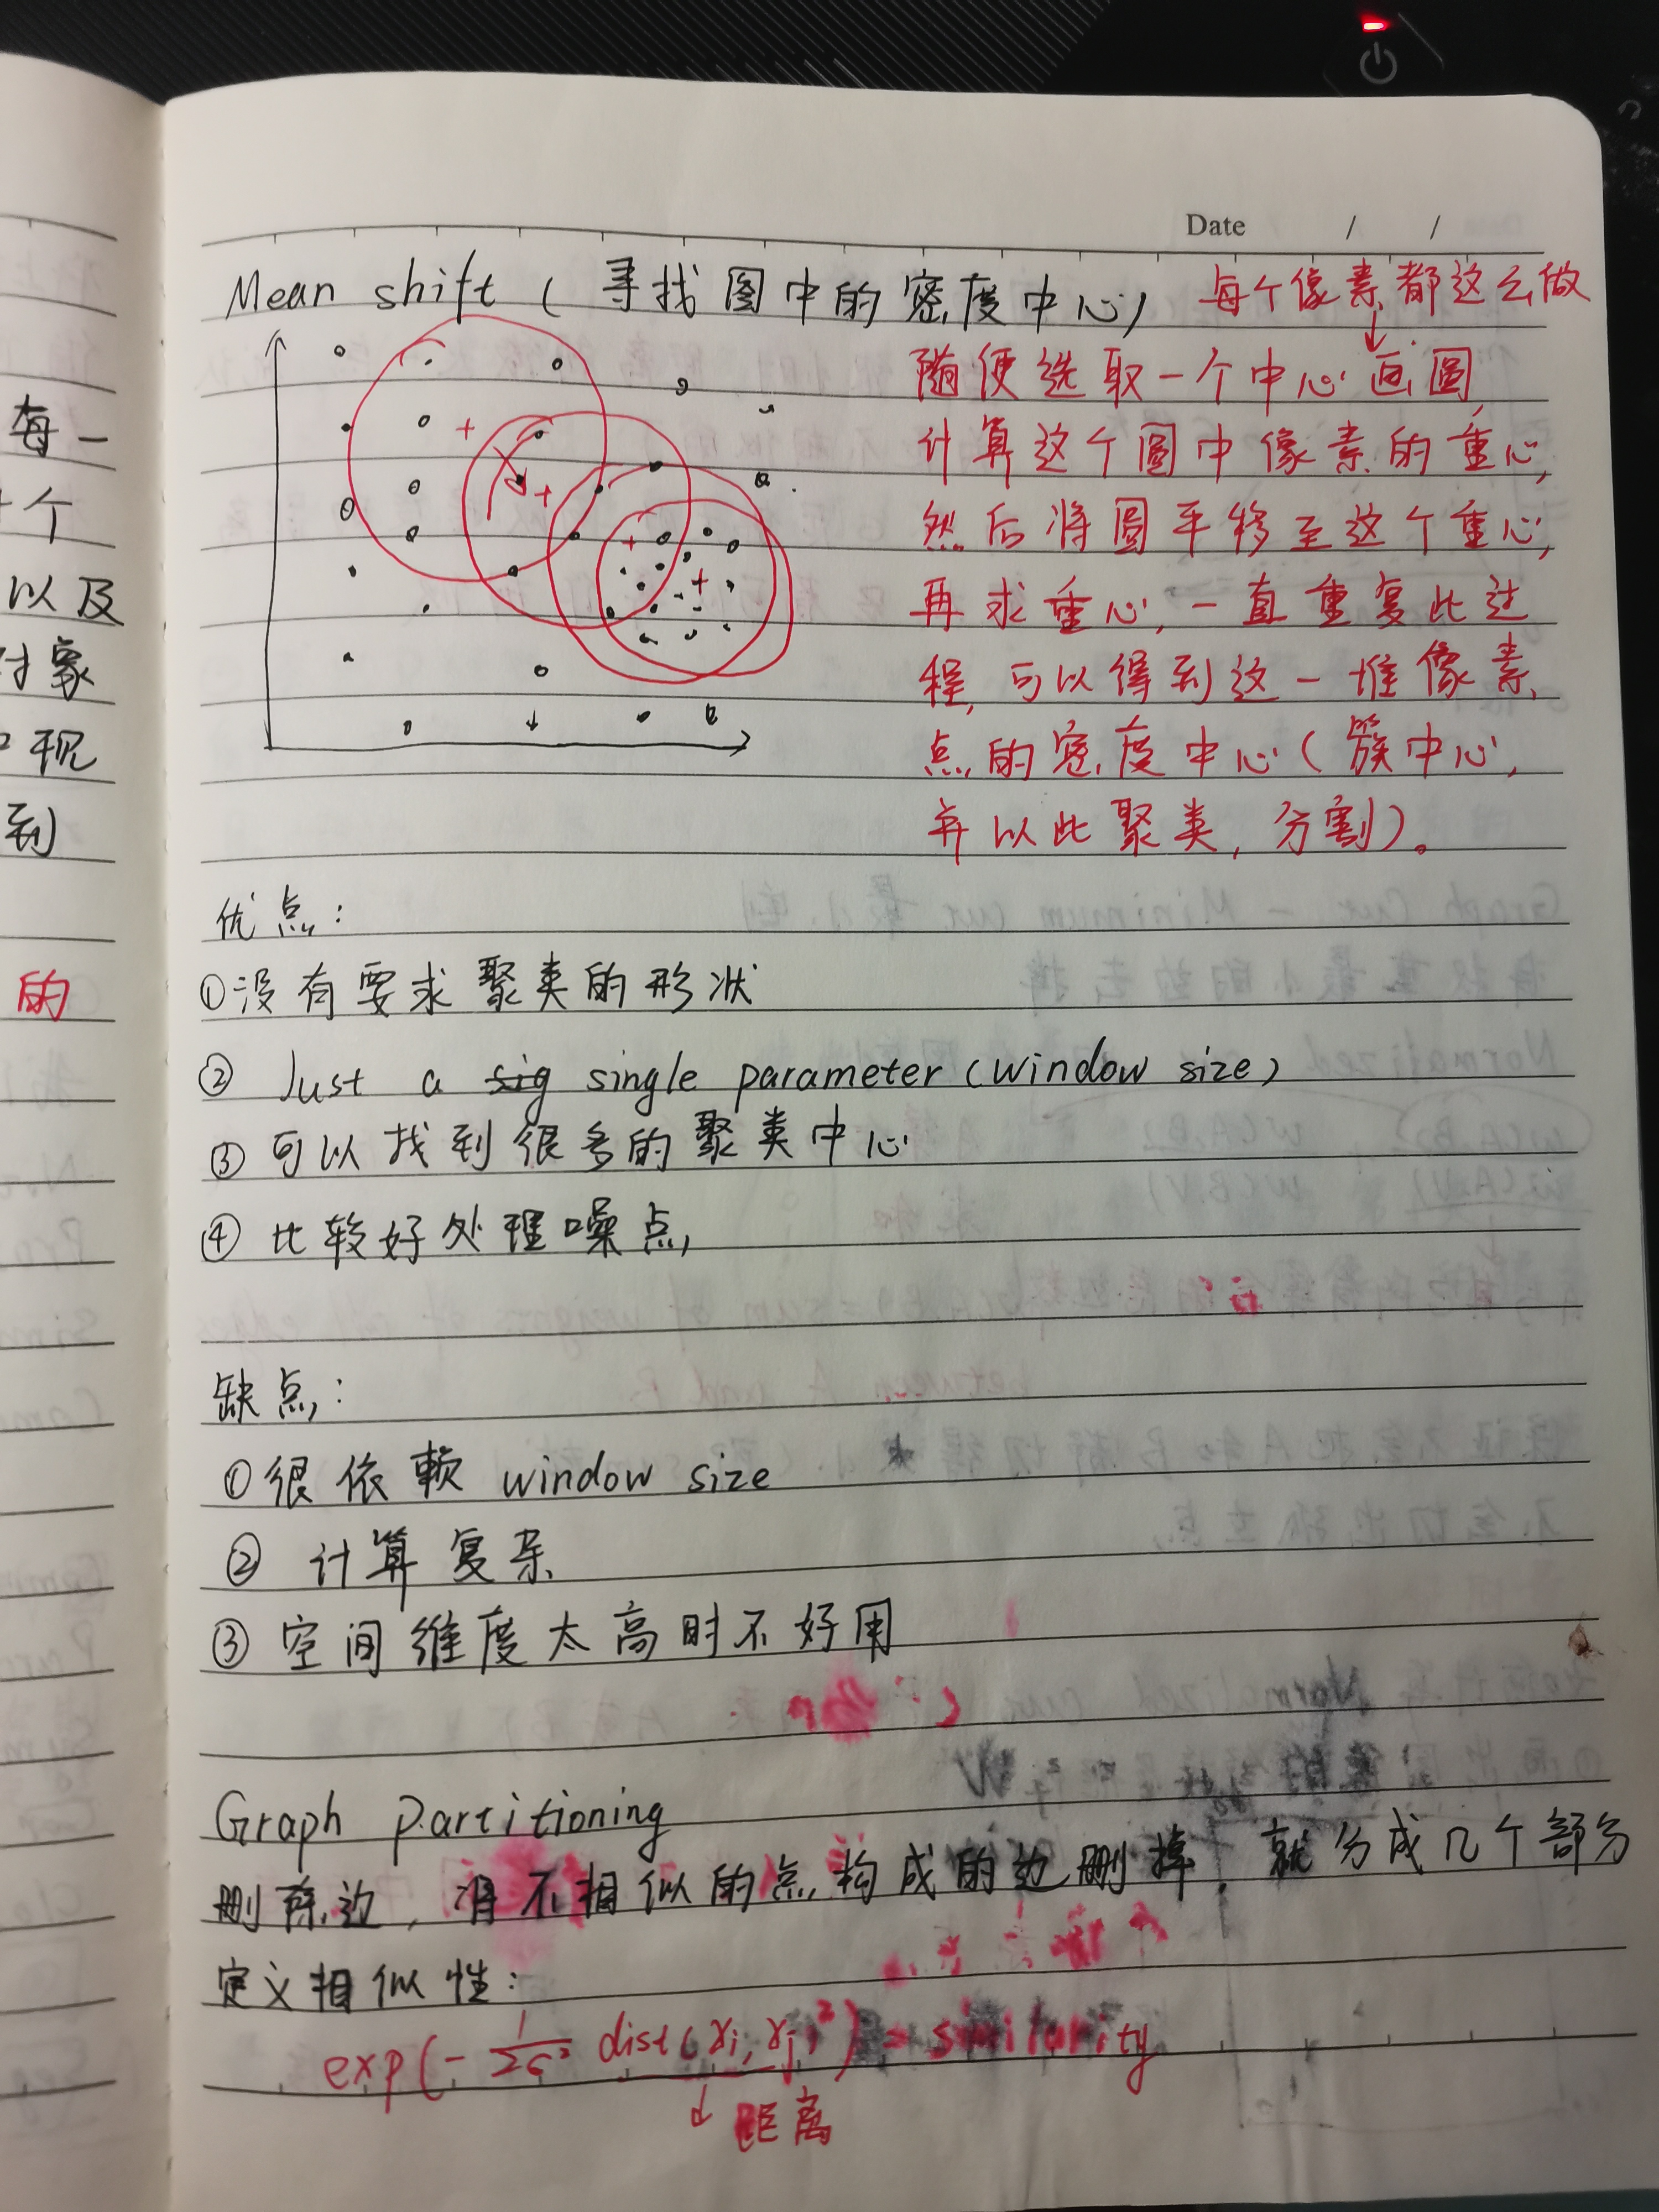 每一
个
以及
对象
中现
到
的
Date / /
Mean shift ( 寻找图中的密度中心) 每个像素都这么做
随便选取一个中心画圆,
计算这个圆中像素的重心,
然后将圆平移至这个重心,
再求重心, 一直重复此过
程, 可以得到这一堆像素
点的密度中心 ( 簇中心,
并以此聚类, 分割)。
优点:
①没有要求聚类的形状
② Just a sig single parameter (window size)
③ 可以找到很多的聚类中心
④ 比较好处理噪点
缺点:
①很依赖 window size
② 计算复杂
③ 空间维度太高时不好用
Graph partitioning
删除边, 将不相似的点构成的边删掉, 就分成几个部分
定义相似性:
exp(- 1/2σ² dist(xi, xj)²) = similarity
↓ 距离